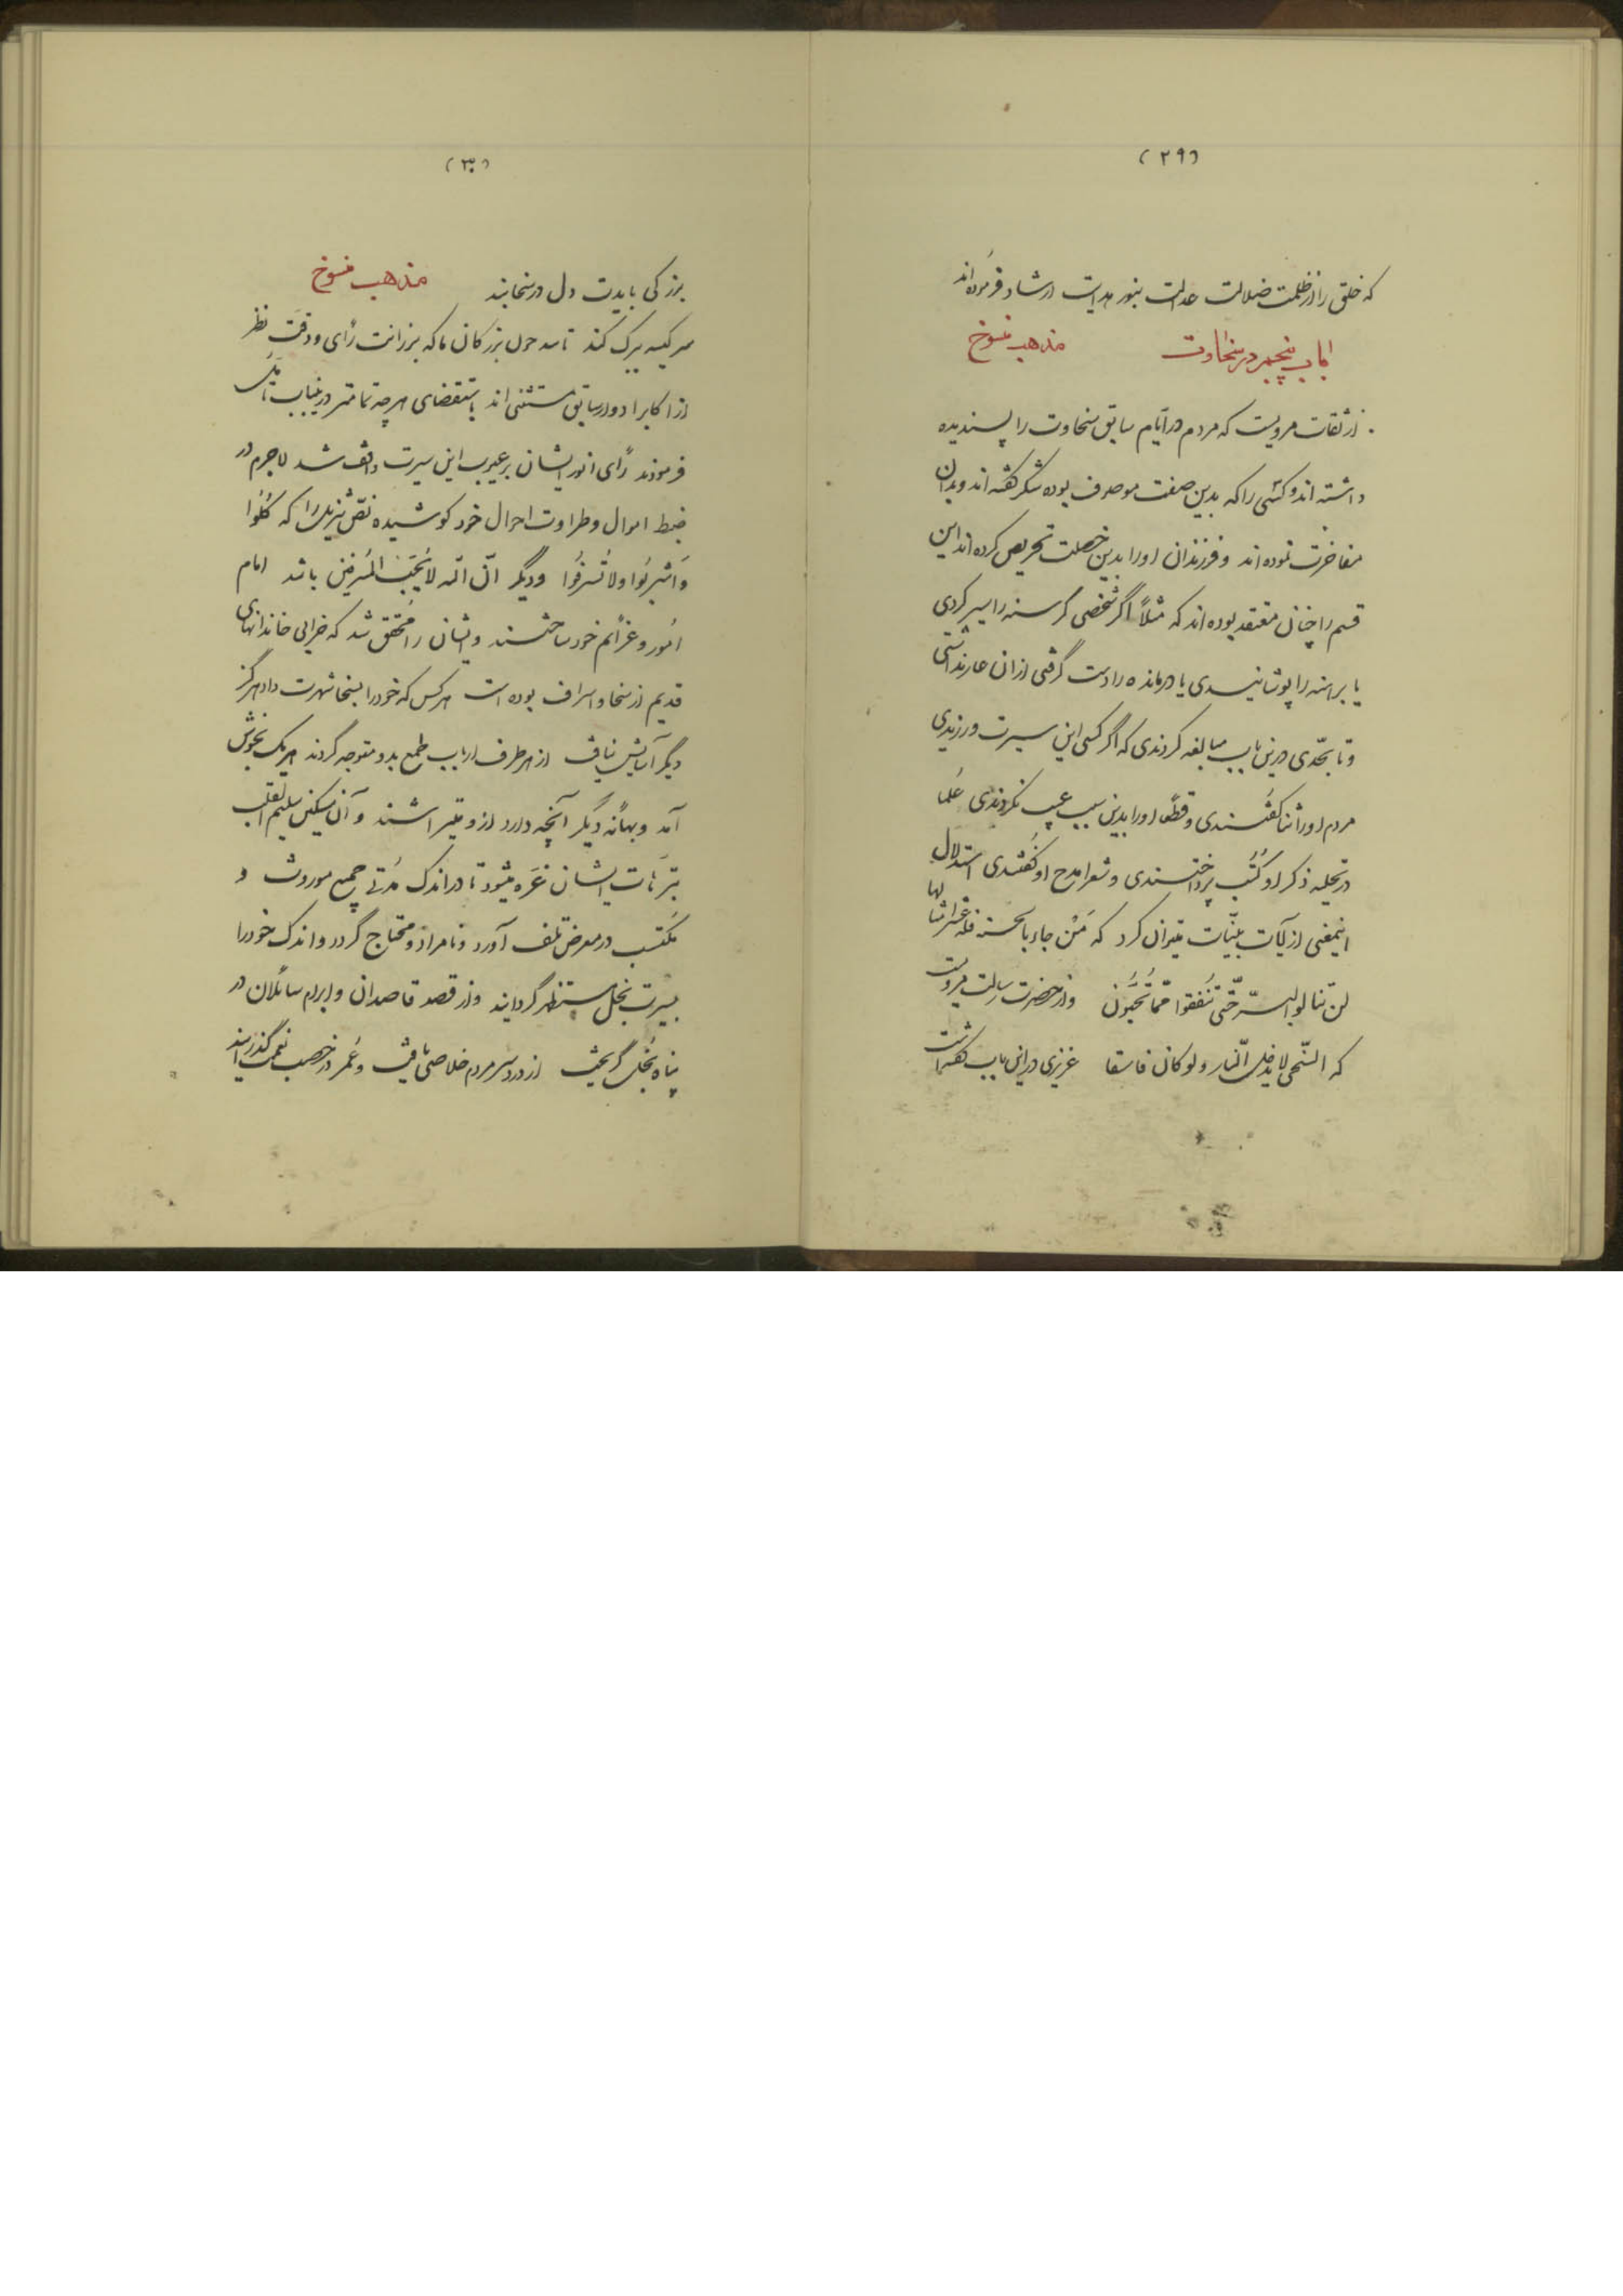 (۲۹)
که خلق را از ظلمت ضلالت عدالت بنور هدایت ارشاد فرموده‌اند
الباب پنجم در سخاوت مذهب منسوخ
از ثقات مرویست که مردم در ایّام سابق سخاوت را پسندیده
داشته اند و کسی را که بدین صفت موصوف بوده شکر گفته اند و بدان
مفاخرت نموده اند و فرزندان او را بدین خصلت تحریص کرده اند این
قسم را چنان معتقد بوده اند که مثلاً اگر شخصی گرسنه را سیر کردی
یا برهنه را پوشانیدی یا درمانده را دست گرفتی از ان عار نداشتی
و تا بحّدی درین باب مبالغه کردندی که اگر کسی این سیرت ورزیدی
مردم او را ثنا گفتندی و قطعًا او را بدین سبب عیب نکردندی عُلما
در تحلیه ذکر او کُتُب پرداختندی و شعرا مدح او گفتندی استدلال
اینمعنی از آیات بیّنات میتوان کرد که مَنْ جاء بالحسنة فله عشر امثالها
لن تنالوا البرّ حّتی تُنفقوا ممّا تُحِبُّون و از حضرت رسالت مرویست
که السّخی لا یدخل النّار و لو کان فاسقا عزیزی در این باب گفته است
(۳۰)
بزرگی بایدت دل در سخا بند مذهب منسوخ
سر کیسه ببرگ کندنا بند چون بزرگان ما که برزانت رأی و دقّت نظر
از اکابر ادوار سابق مستثنی اند باستقصای هرچه تمامتر درینباب تأمّل
فرمودند رأی انور ایشان بر عیوب این سیرت واقف شد لاجرم در
ضبط اموال و طراوت احوال خود کوشیده نصّ تنزیل را که کُلُوا
وَاشْربُوا ولا تُسرفُوا و دیگر انّ الله لا یُحِبّ المُسْرِفین باشد امام
امُور و عزأئم خود ساختند و ایشان را محقق شد که خرابی خاندانهای
قدیم از سخا و اسراف بوده است هرکس که خود را بسخا شهرت داد هرگز
دیگر آسایش نیافت از هر طرف ارباب طمع بدو متوجه گردند هریک بخوش
آمد و بهأنه دیگر آنچه دارد از و میتراشند و آن مسکین سلیم القلب
بترّهات ایشان غَره میشود تا در اندک مُدّتی جمیع موروث و
مکتسب در معرض تلف آورد و نامراد و محتاج گردد و اندک خود را
بسیرت بخل مستظهر گردانید و از قصد قاصدان و ابرام سائلان در
پناه بُخل گریخت از درد سر مردم خلاصی یافت و عُمر در خصب نعمت گذرانید